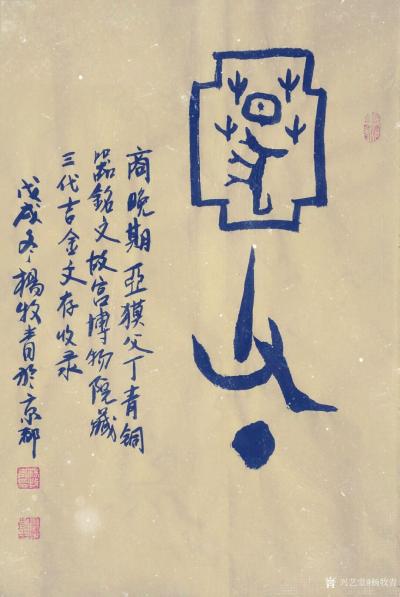 亞獏父丁
商晚期亞獏父丁青铜
器銘文故宫博物院藏
三代吉金文存收录
戊戌冬楊牧青於京都
兴艺堂@杨牧青